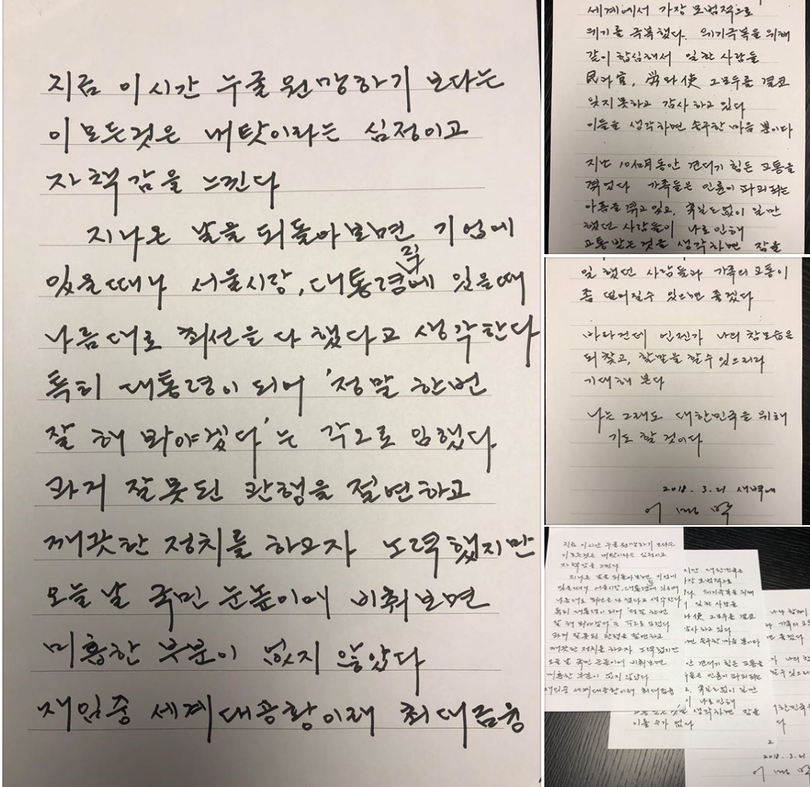 지금 이 시간 누굴 원망하기 보다는
이 모든것은 내 탓이라는 심정이고
자책감을 느낀다
지나온 날을 되돌아보면 기업에
있을때나 서울시장, 대통령직에 있을때
나름대로 최선을 다했다고 생각한다
특히 대통령이 되어 '정말 한번
잘 해 봐야겠다'는 각오로 임했다
과거 잘못된 관행을 절연하고
깨끗한 정치를 하고자 노력했지만
오늘날 국민 눈높이에 비춰보면
미흡한 부분이 없지 않았다
재임중 세계대공황이래 최대금융
세계에서 가장 모범적으로
위기를 극복했다. 위기극복을 위해
같이 합심해서 일한 사람들
民과 官, 勞와 使 그 모두를 결코
잊지 못하고 감사하고 있다
이들을 생각하면 송구한 마음 뿐이다
지난 10개月동안 견디기 힘든 고통을
겪었다 가족들은 인륜이 파괴되는
아픔을 겪고 있고, 휴일도 없이 일만
했던 사람들이 나로 인해
고통받는것을 생각하면 잠을
일했던 사람들과 가족의 고통이
좀 덜어질수 있으면 좋겠다
바라건데 언젠가 나의 참모습을
되찾고, 할말을 할수 있으리라
기대해 본다
나는 그래도 대한민국을 위해
기도할 것이다
2018. 3. 21 새벽에
이 명 박
이룰수가 없다